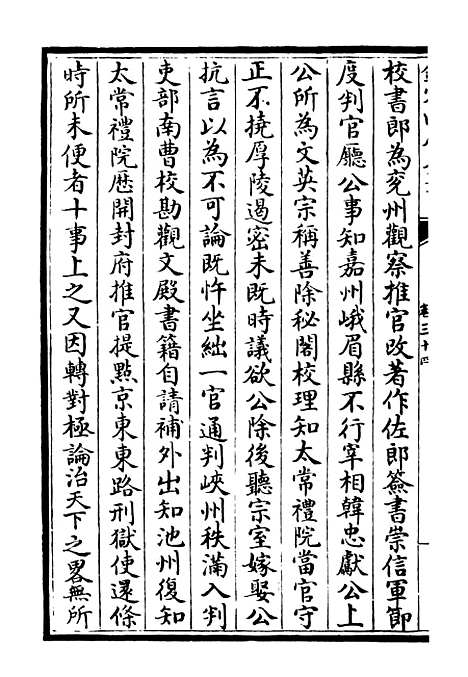 校書郎為兖州觀察推官改著作佐郎簽書崇信軍節
度判官廳公事知嘉州峨眉縣不行宰相韓忠獻公上
公所為文英宗稱善除秘閣校理知太常禮院當官守
正不撓厚陵遏密未既時議欲公除後聽宗室嫁娶公
抗言以為不可論既忤坐絀一官通判峽州秩滿入判
吏部南曹校勘觀文殿書籍自請補外出知池州復知
太常禮院歴開封府推官提點京東東路刑獄使還條
時所未便者十事上之又因轉對極論治天下之畧無所
卷三十四